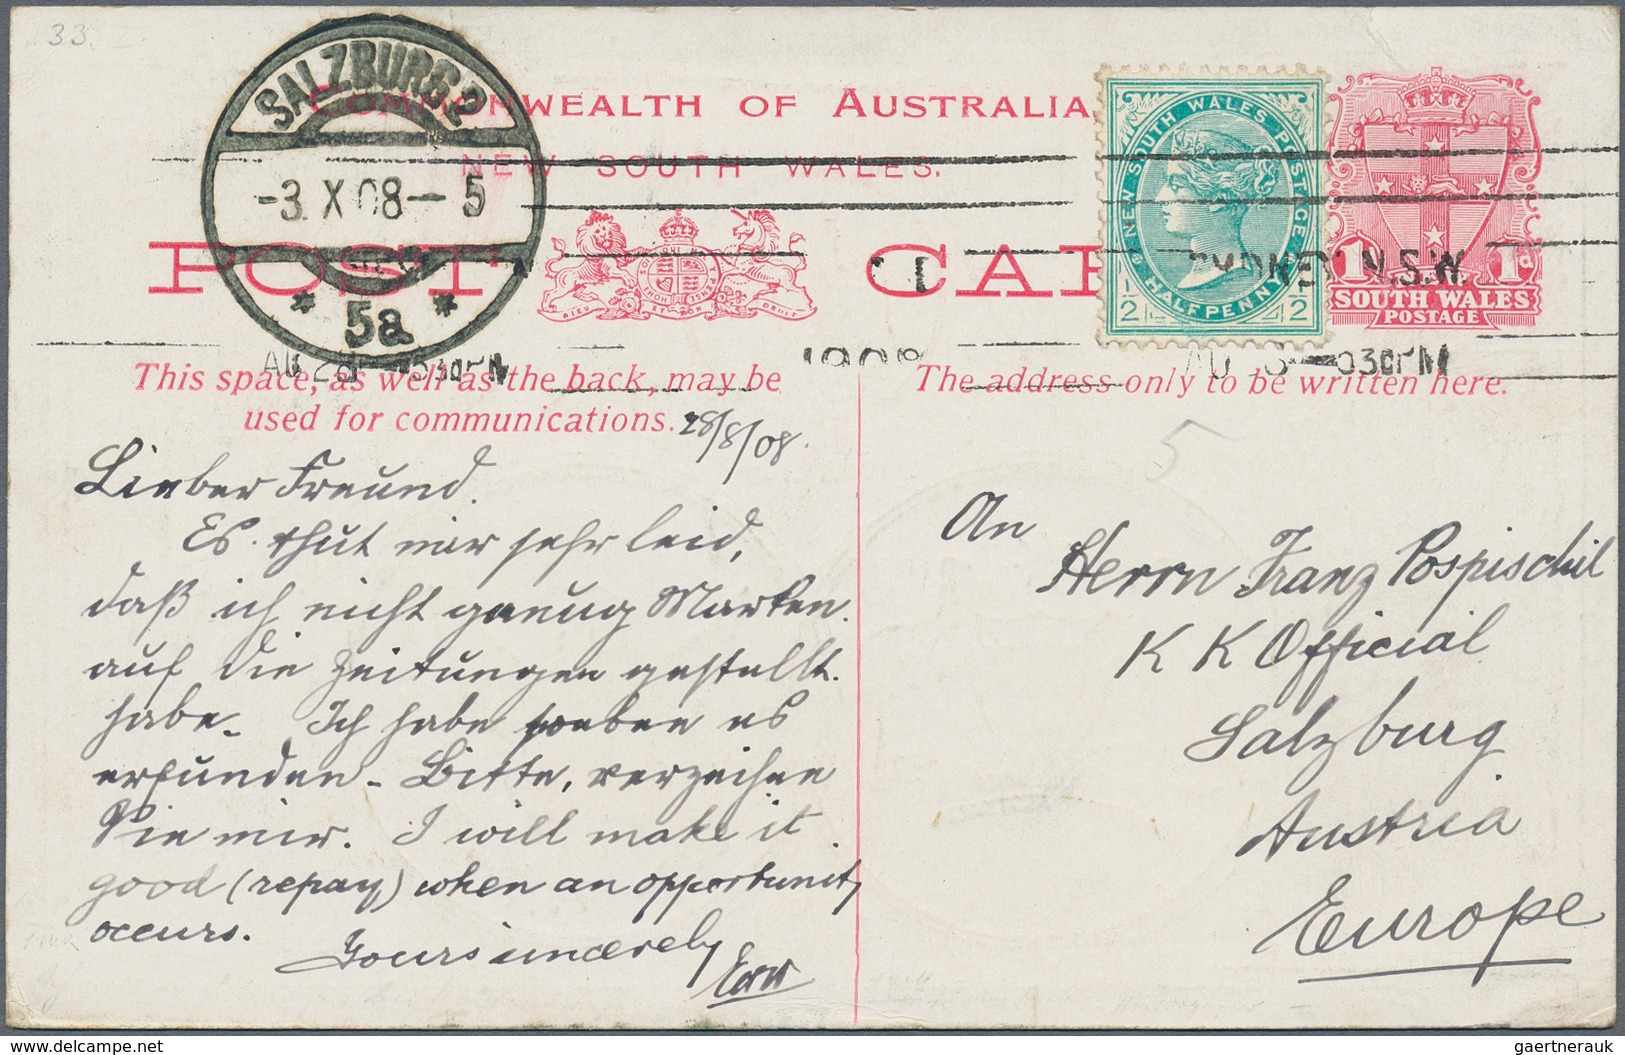 33
SALZBURG 2
-3. X 08-5
* 5a *
COMMONWEALTH OF AUSTRALIA
NEW SOUTH WALES.
POST CAR
NEW SOUTH WALES POSTAGE
HALFPENNY
1/2 1/2
1d 1d
SOUTH WALES
POSTAGE
SYDNEY N.S.W.
1
1908
530PM
This space, as well as the back, may be
used for communications.
The address only to be written here.
28/8/08.
5
Lieber Freund.
Es thut mir sehr leid,
daß ich nicht genug Marken.
auf die Zeitungen gestellt.
habe. Ich habe soeben es
erfunden - Bitte, verzeihen
Sie mir. I will make it
good (repay) when an opportunity
occurs.
Yours sincerely
An
Herrn Franz Pospischil
K K Official
Salzburg
Austria
Europe
gaertnerauk